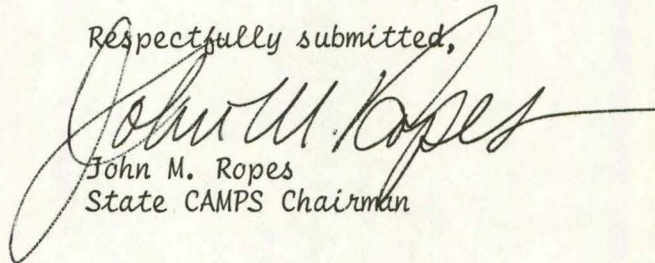 Respectfully submitted,
John M. Ropes
John M. Ropes
State CAMPS Chairman